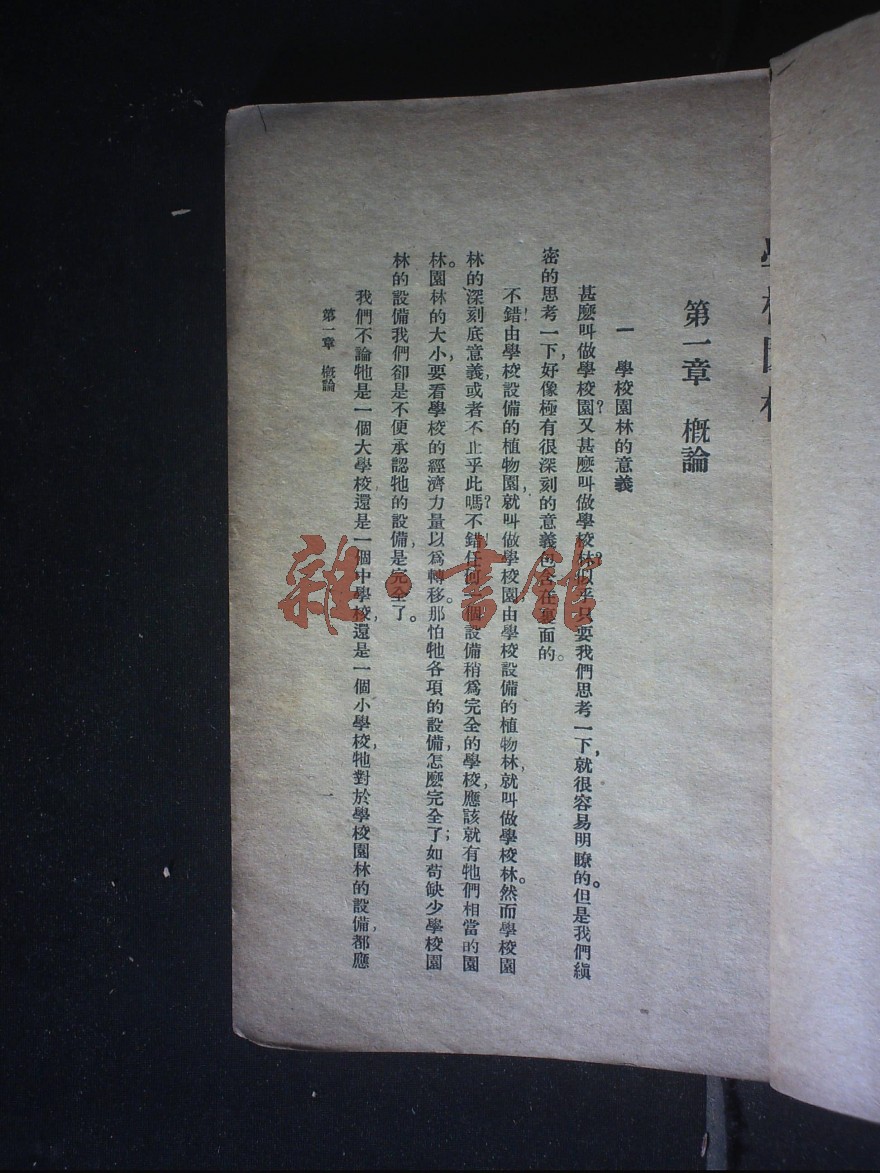 學校園林
第一章　概論
一　學校園林的意義
甚麼叫做學校園?又甚麼叫做學校林?似乎只要我們思考一下,就很容易明瞭的。但是我們縝
密的思考一下,好像極有很深刻的意義包含在裏面的。
不錯!由學校設備的植物園,就叫做學校園;由學校設備的植物林,就叫做學校林。然而學校園
林的深刻底意義或者不止乎此嗎?不錯!任何一個設備稍爲完全的學校,應該就有牠們相當的園
林。園林的大小,要看學校的經濟力量以爲轉移。那怕牠各項的設備,怎麼完全了;如苟缺少學校園
林的設備我們卻是不便承認牠的設備,是完全了。
我們不論牠是一個大學校還是一個中學校,還是一個小學校,牠對於學校園林的設備,都應
第一章　概論
一
雜·書館